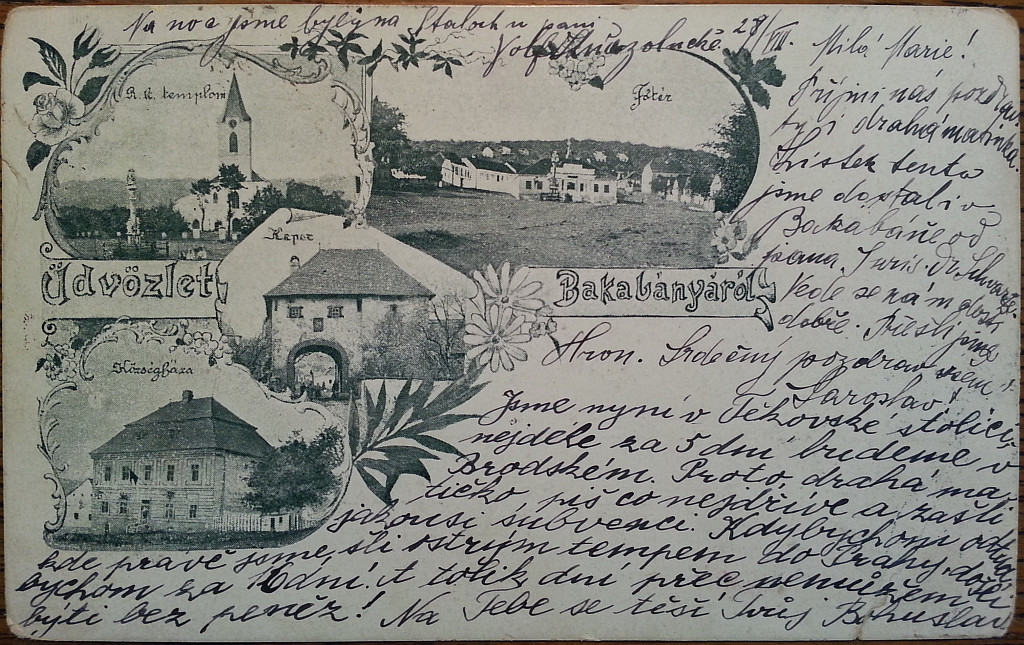 Na noc jsme byly na Štaloch u paní
28/VII.
Milá Marie!
R. k. templom
Főtér
Přijmi náš pozdrav
ty i drahá matinka.
Lístek tento
jsme dostali v
Bakabáně od
pana Juris. Dr.
Vede se nám
dobře. Přešli jsme
Hron. Srdečný pozdrav všem
Jaroslav!
Kapu
Üdvözlet Bakabányáról
Községháza
Jsme nyní v Tekovské stolici
nejdéle za 5 dní budeme v
Brodském. Proto, drahá ma-
tičko, piš co nejdříve a zašli
jakousi subvenci. Kdybychom odtud,
kde právě jsme, šli ostrým tempem do Prahy, došli
bychom za 10 dní. A tolik dní přec nemůžem
býti bez peněz! Na Tebe se těší Tvůj Bohuslav